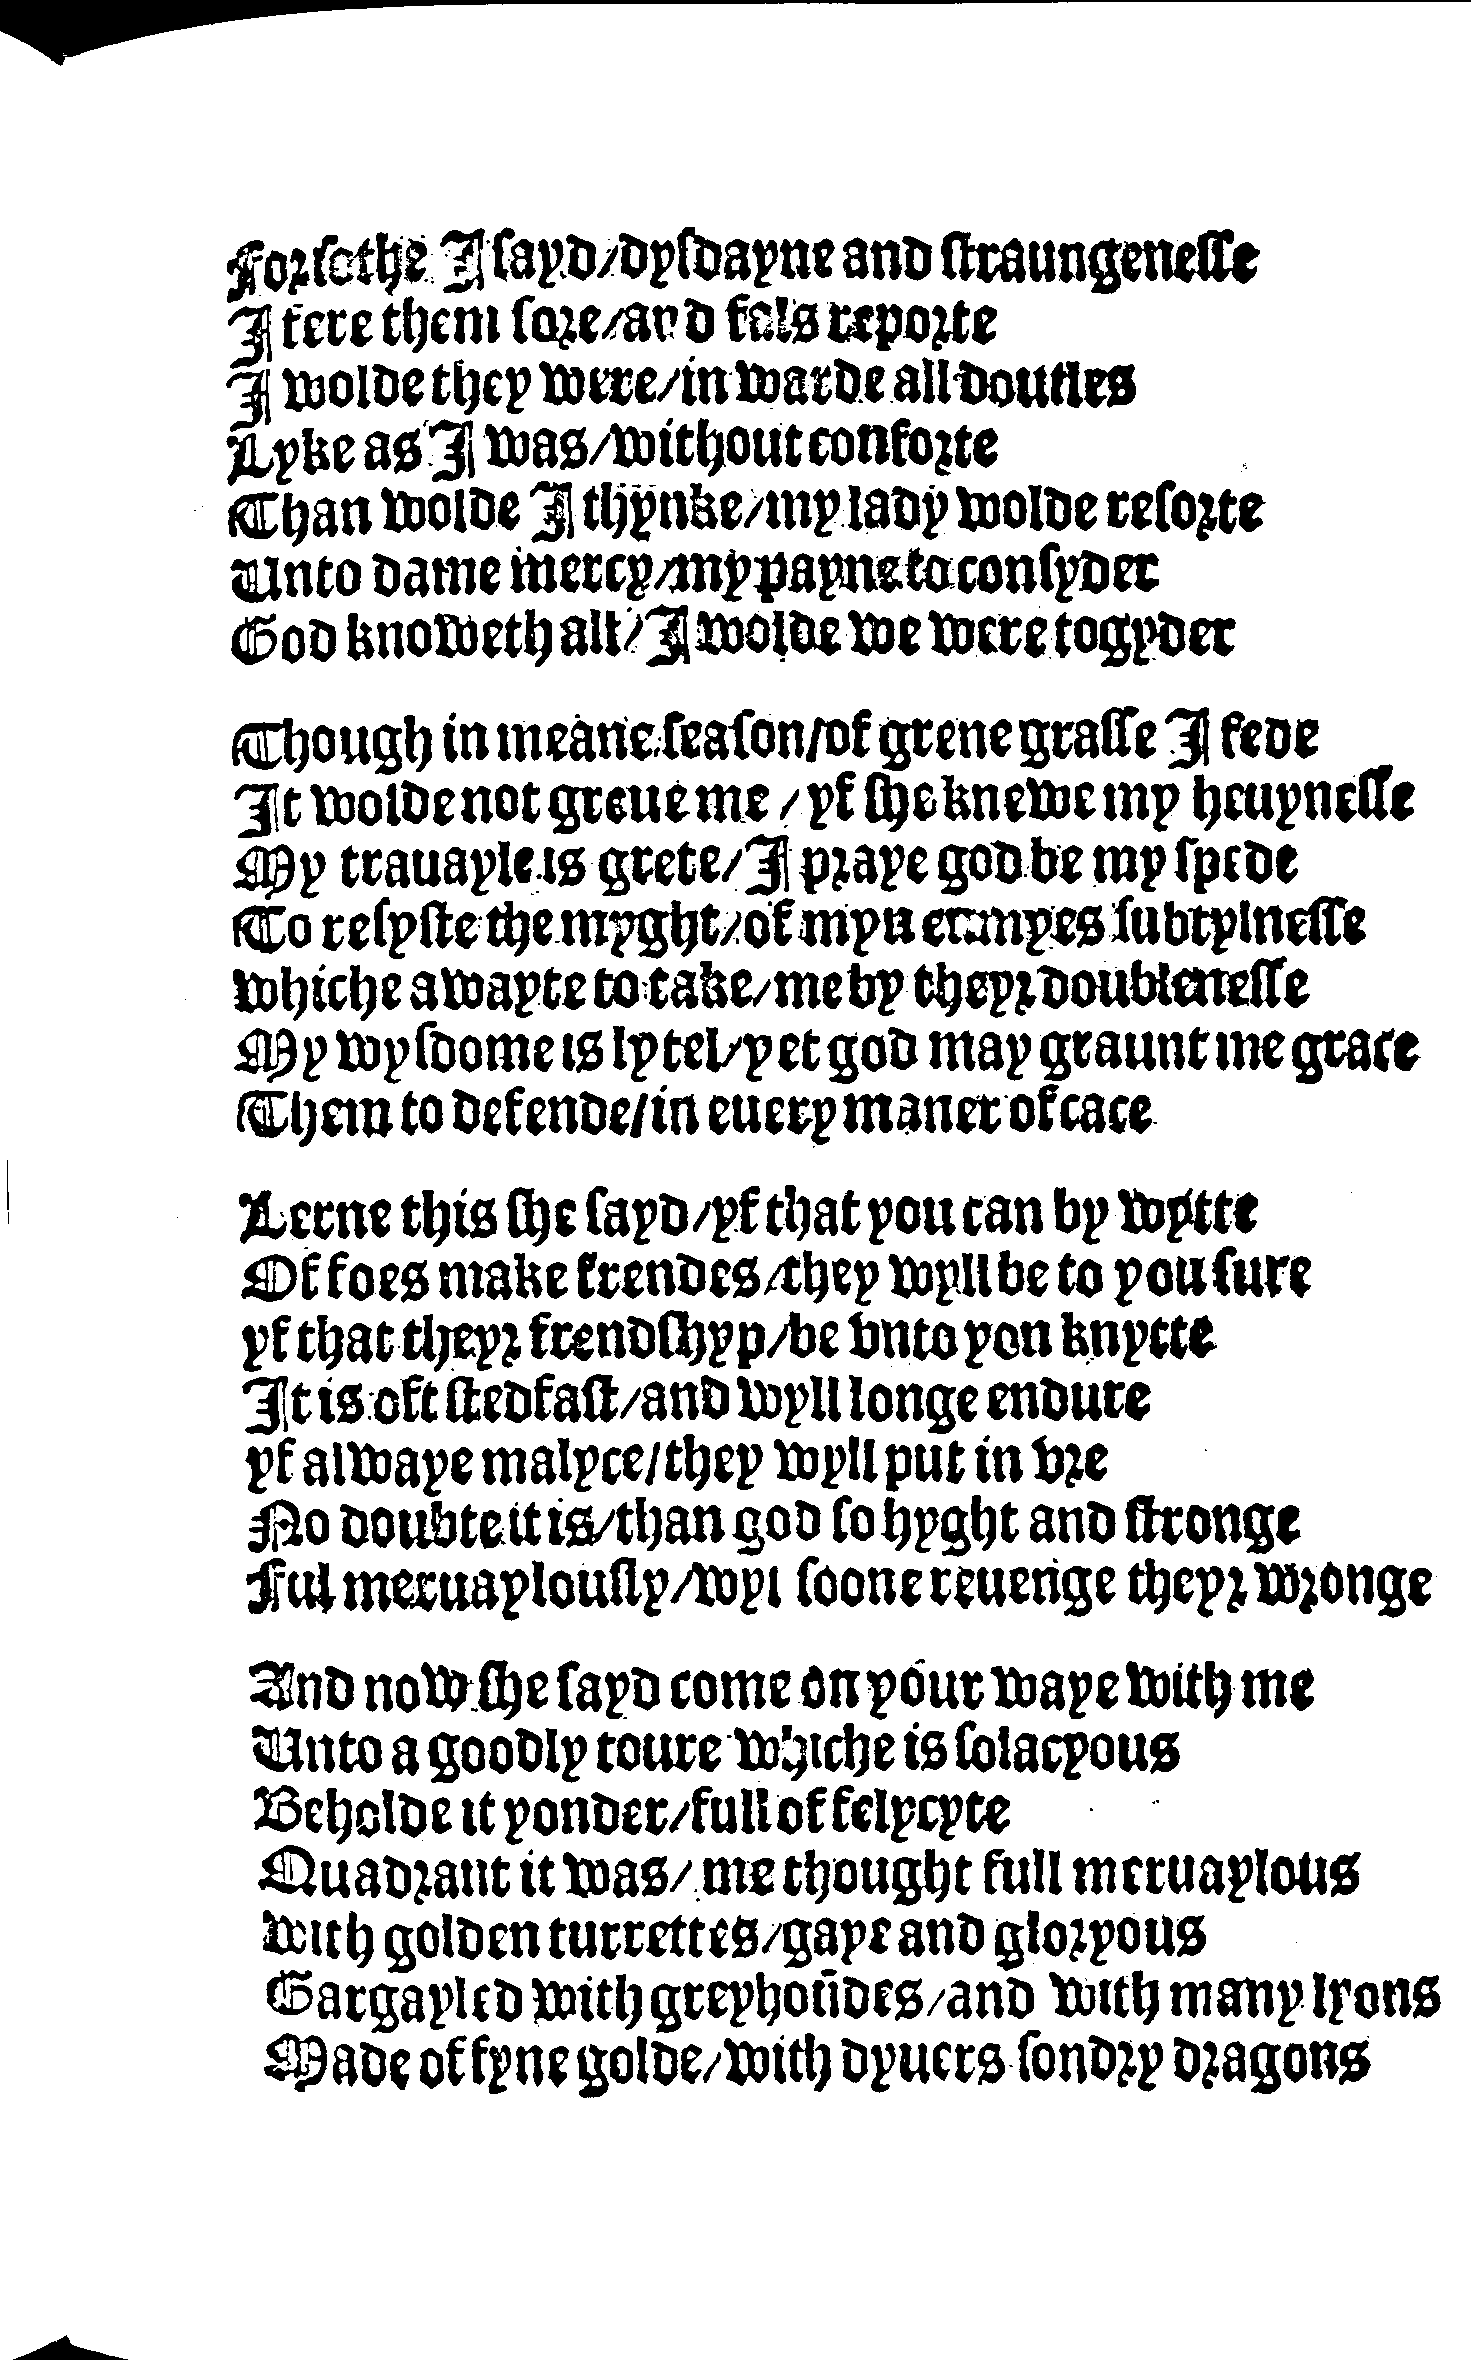 Forſothe I ſayd/dyſdayne and ſtraungeneſſe
I fere them ſore/and fals reporte
I wolde they were/in warde all doutles
Lyke as I was/without conforte
Than wolde I thynke/my lady wolde reſorte
Unto dame mercy/my payne to conſyder
God knoweth all/I wolde we were togyder

Though in meane ſeaſon/of grene graſſe I fede
It wolde not greue me/yf ſhe knewe my heuyneſſe
My trauayle is grete/I praye god be my ſpede
To reſyſte the myght/of myn enmyes ſubtylneſſe
whiche awayte to take/me by theyr doubleneſſe
My wyſdome is lytel/yet god may graunt me grace
Them to defende/in euery maner of cace

Lerne this ſhe ſayd/yf that you can by wytte
Of foes make frendes/they wyll be to you ſure
yf that theyr frendſhyp/be vnto yon knytte
It is oft ſtedfaſt/and wyll longe endure
yf alwaye malyce/they wyll put in vre
No doubte it is/than god ſo hyght and ſtronge
Ful meruaylouſly/wyl ſoone reuenge theyr wronge

And now ſhe ſayd come on your waye with me
Unto a goodly toure whiche is ſolacyous
Beholde it yonder/full of felycyte
Quadrant it was/me thought full meruaylous
with golden turrettes/gaye and gloryous
Gargayled with greyhoūdes/and with many lyons
Made of fyne golde/with dyuers ſondry dragons